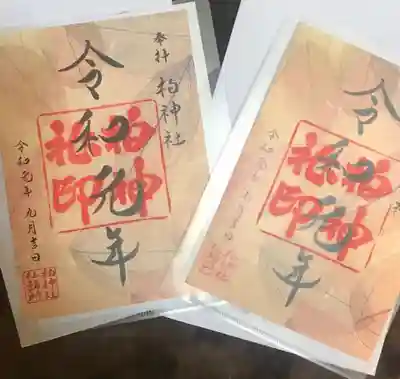 奉拝
柏神社
令和元年
柏神
社印
令和元年 九月吉日
令和元年
柏神
社印
令和元年 九月吉日